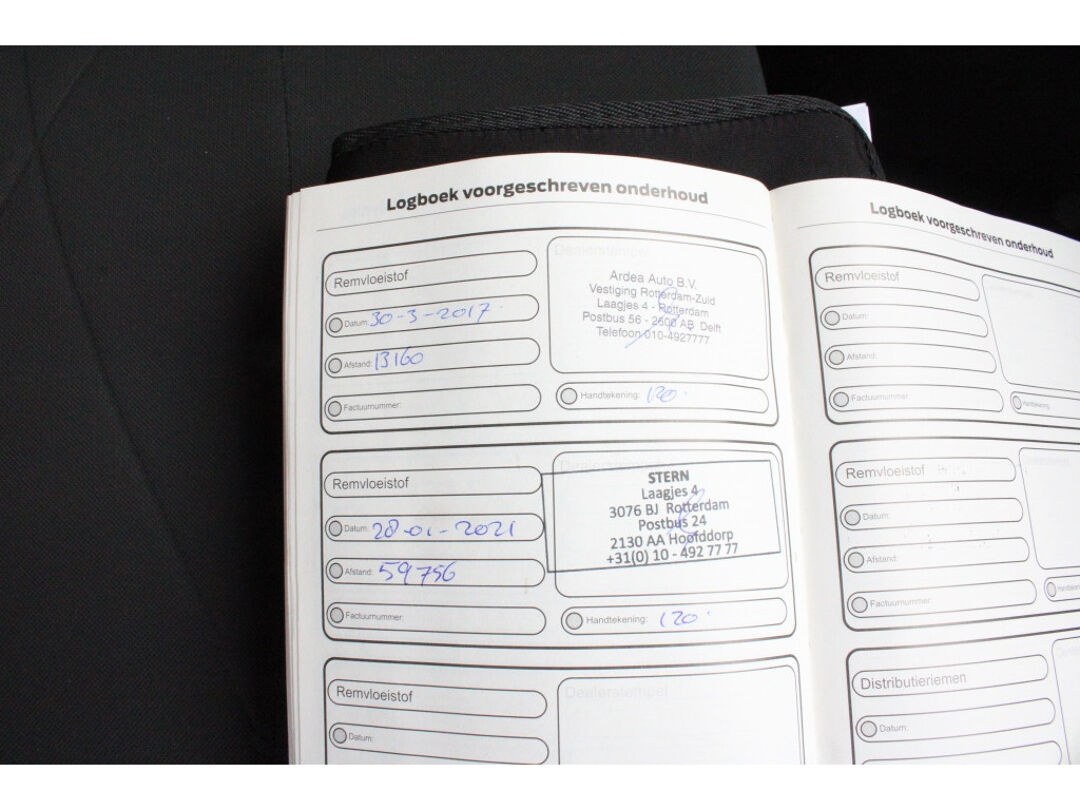 Logboek voorgeschreven onderhoud
Remvloeistof
Datum: 30-3-2017
Afstand: 13160
Factuurnummer:
Dealerstempel
Ardea Auto B.V.
Vestiging Rotterdam-Zuid
Laagjes 4 - Rotterdam
Postbus 56 - 2600 AB Delft
Telefoon 010-4927777
Handtekening: 120
Remvloeistof
Datum: 28-01-2021
Afstand: 59756
Factuurnummer:
Dealerstempel
STERN
Laagjes 4
3076 BJ Rotterdam
Postbus 24
2130 AA Hoofddorp
+31(0) 10 - 492 77 77
Handtekening: 120
Remvloeistof
Datum:
Dealerstempel
Logboek voorgeschreven onderhoud
Remvloeistof
Datum:
Afstand:
Factuurnummer:
Handtekening:
Remvloeistof
Datum:
Afstand:
Factuurnummer:
Distributieriemen
Datum: